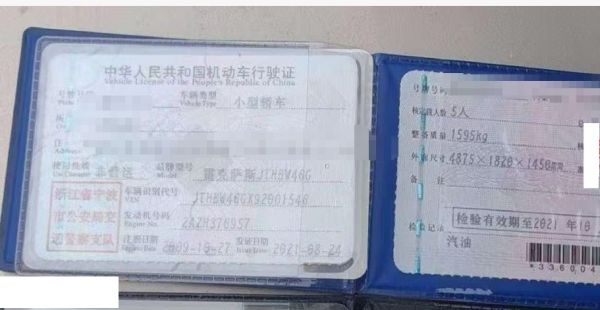 中华人民共和国机动车行驶证
Vehicle License of the People's Republic of China
号牌号码
车辆类型 小型轿车
Vehicle Type
使用性质 非营运
Use Character
品牌型号 雷克萨斯JTHBW46G
Model
车辆识别代号
VIN
JTHBW46GX92001546
发动机号码
Engine No.
2AZH376957
注册日期
Register Date
发证日期
Issue Date
2021-08-24
浙江省宁波
市公安局交
通警察支队
号牌号码
核定载人数 5人
整备质量 1595kg
外廓尺寸 4875×1820×1450
备注
检验记录
检验有效期至2021年10
汽油